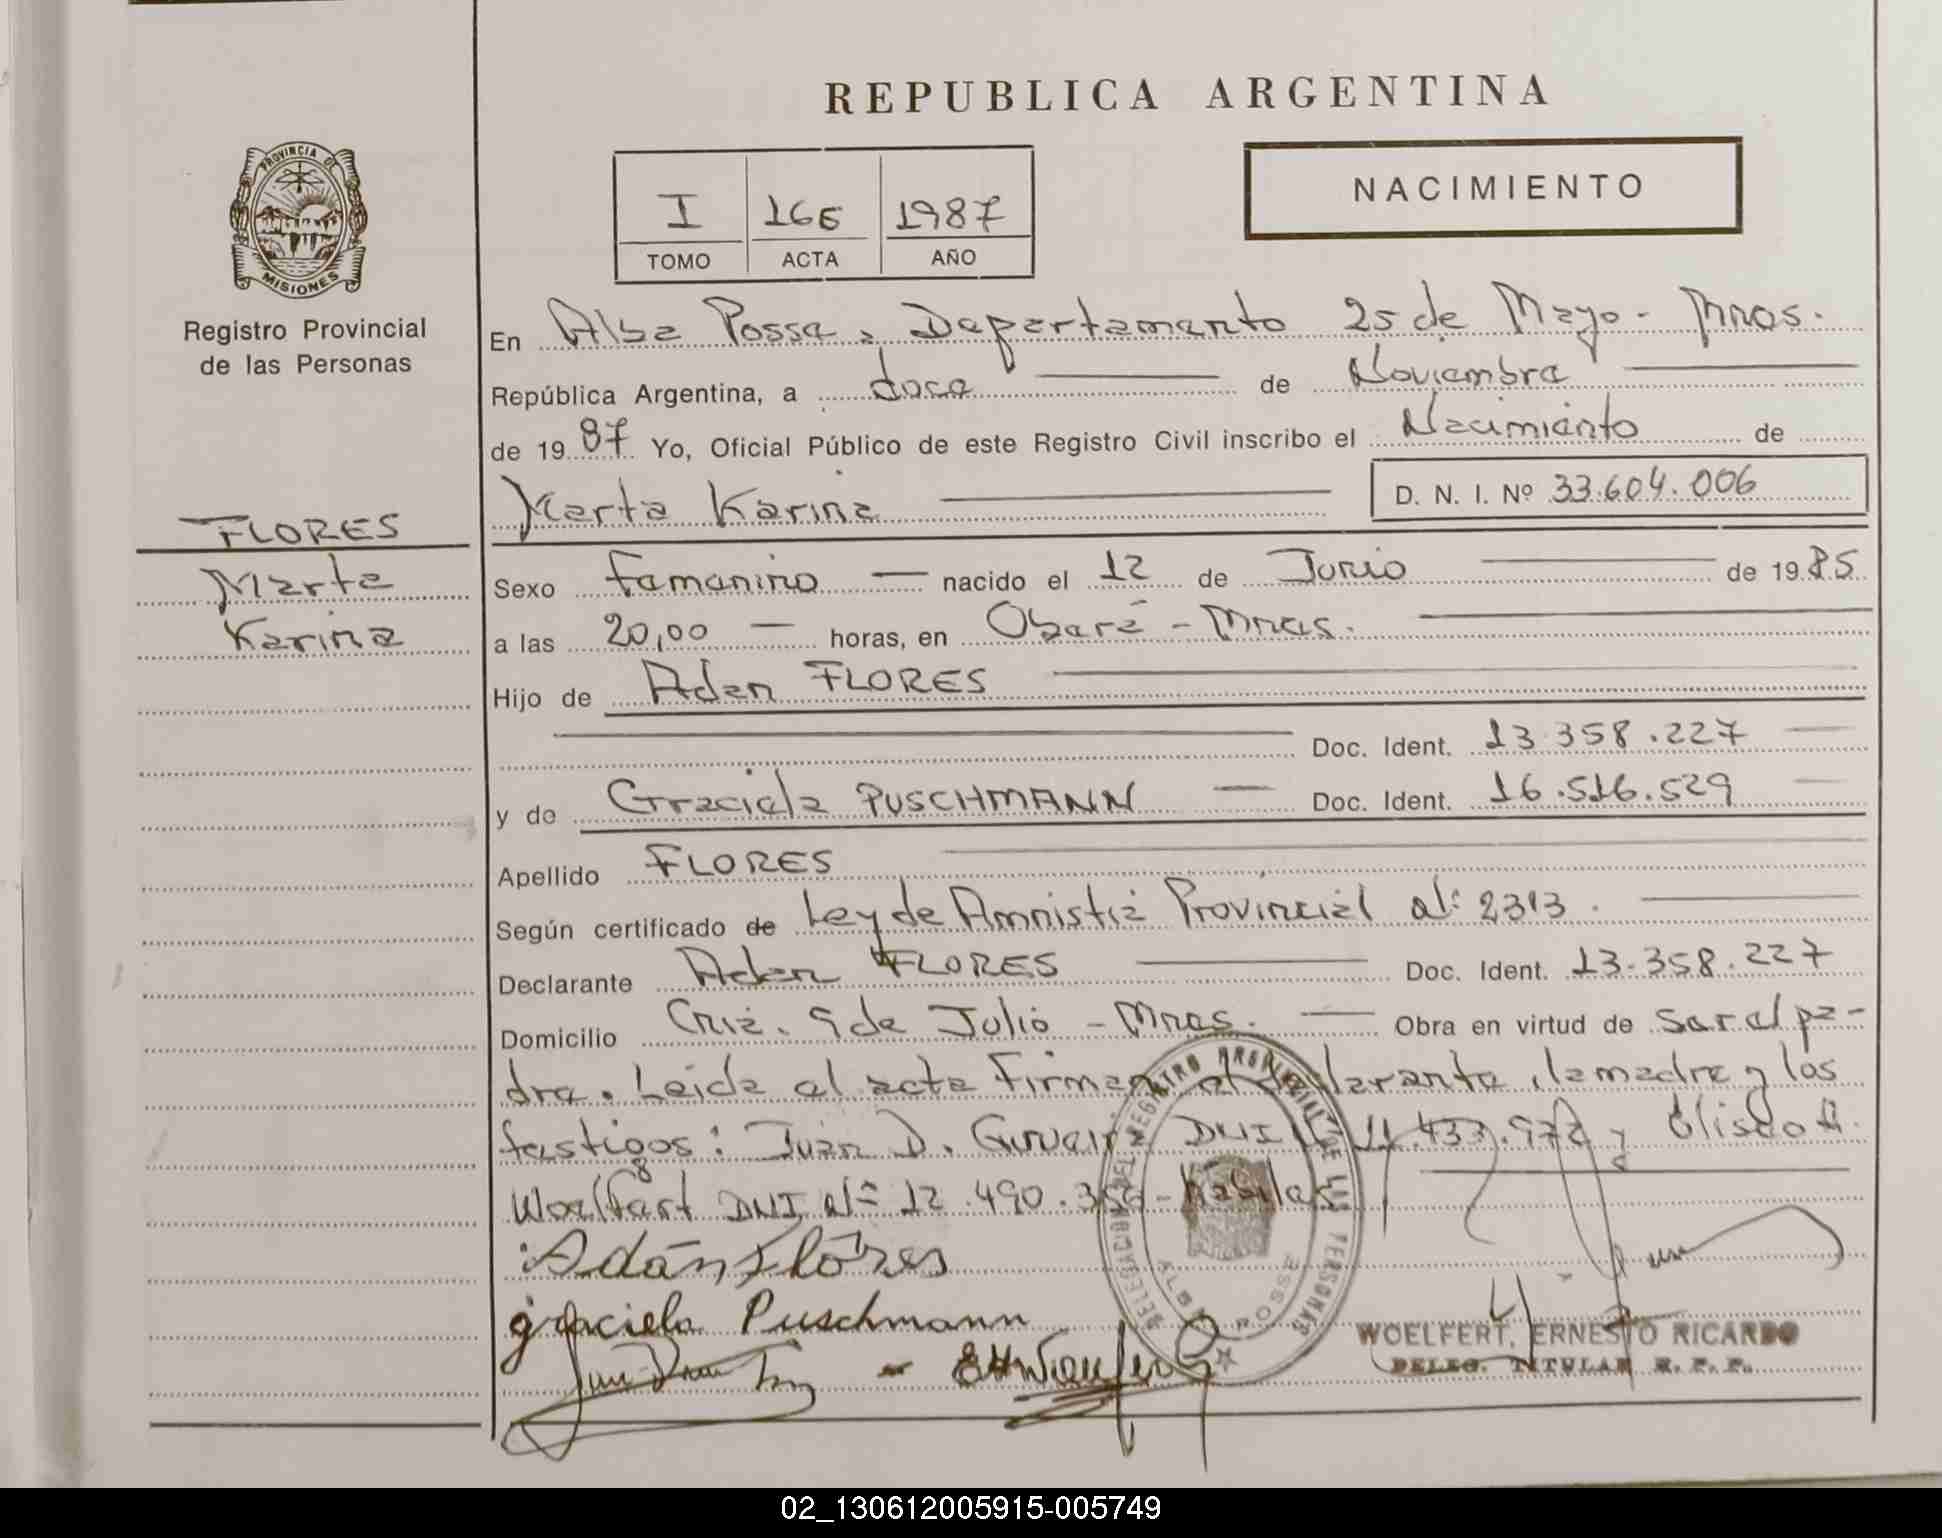 REPUBLICA ARGENTINA
PROVINCIA DE
MISIONES
Registro Provincial
de las Personas
I 166 1987
TOMO ACTA AÑO
NACIMIENTO
En Alba Posse, Departamento 25 de Mayo - Mnes.
República Argentina, a doce de Noviembre
de 1987 Yo, Oficial Público de este Registro Civil inscribo el Nacimiento de
Marta Karina D. N. I. Nº 33.604.006
FLORES
Marta
Karina
Sexo femenino nacido el 12 de Junio de 1985
a las 20,00 horas, en Oberá - Mnes.
Hijo de Adan FLORES
Doc. Ident. 13.358.227
y de Graciela PUSCHMANN Doc. Ident. 16.516.529
Apellido FLORES
Según certificado de Ley de Amnistia Provincial Nº 2313.
Declarante Adan FLORES Doc. Ident. 13.358.227
Domicilio Cnia. 9 de Julio - Mnes. Obra en virtud de ser el pa-
dre. Leida el acta Firman el declarante, la madre y los
testigos: Juan D. DNI 11.433.972 y
Woelfert DNI Nº 12.490.
Adán Flóres
graciela Puschmann
DELEGACION DEL REGISTRO PROVINCIAL DE LAS PERSONAS
ALBA POSSE
WOELFERT, ERNESTO RICARDO
DELEG. TITULAR R. P. P.
02_130612005915-005749